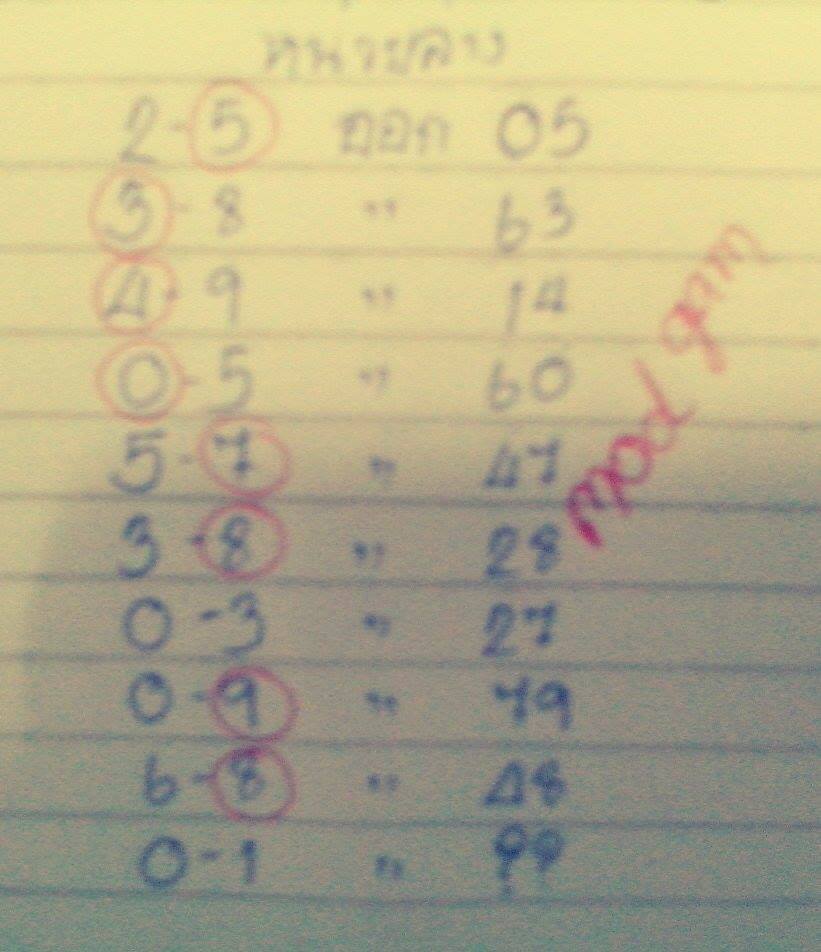 หนายล่าง
2-5 ออก 05
3-8 " 63
4-9 " 14
0-5 " 60
5-7 " 47
3-8 " 28
0-3 " 27
0-9 " 79
6-8 " 48
0-1 " ??
mod gam